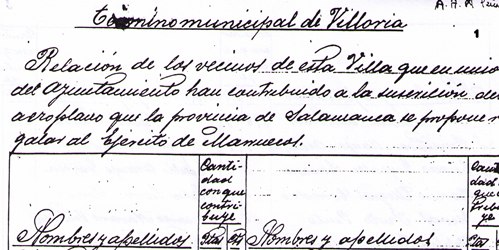 Término municipal de Villoria
1
Relación de los vecinos de esta Villa que en unió
del Ayuntamiento han contribuido a la suscrición del
aeroplano que la provincia de Salamanca se propone r
galar al Ejército de Marruecos.
Nombres y apellidos
Canti-
dad
con que
contri-
buye
Ptas
Nombres y apellidos
Cant
dad
que